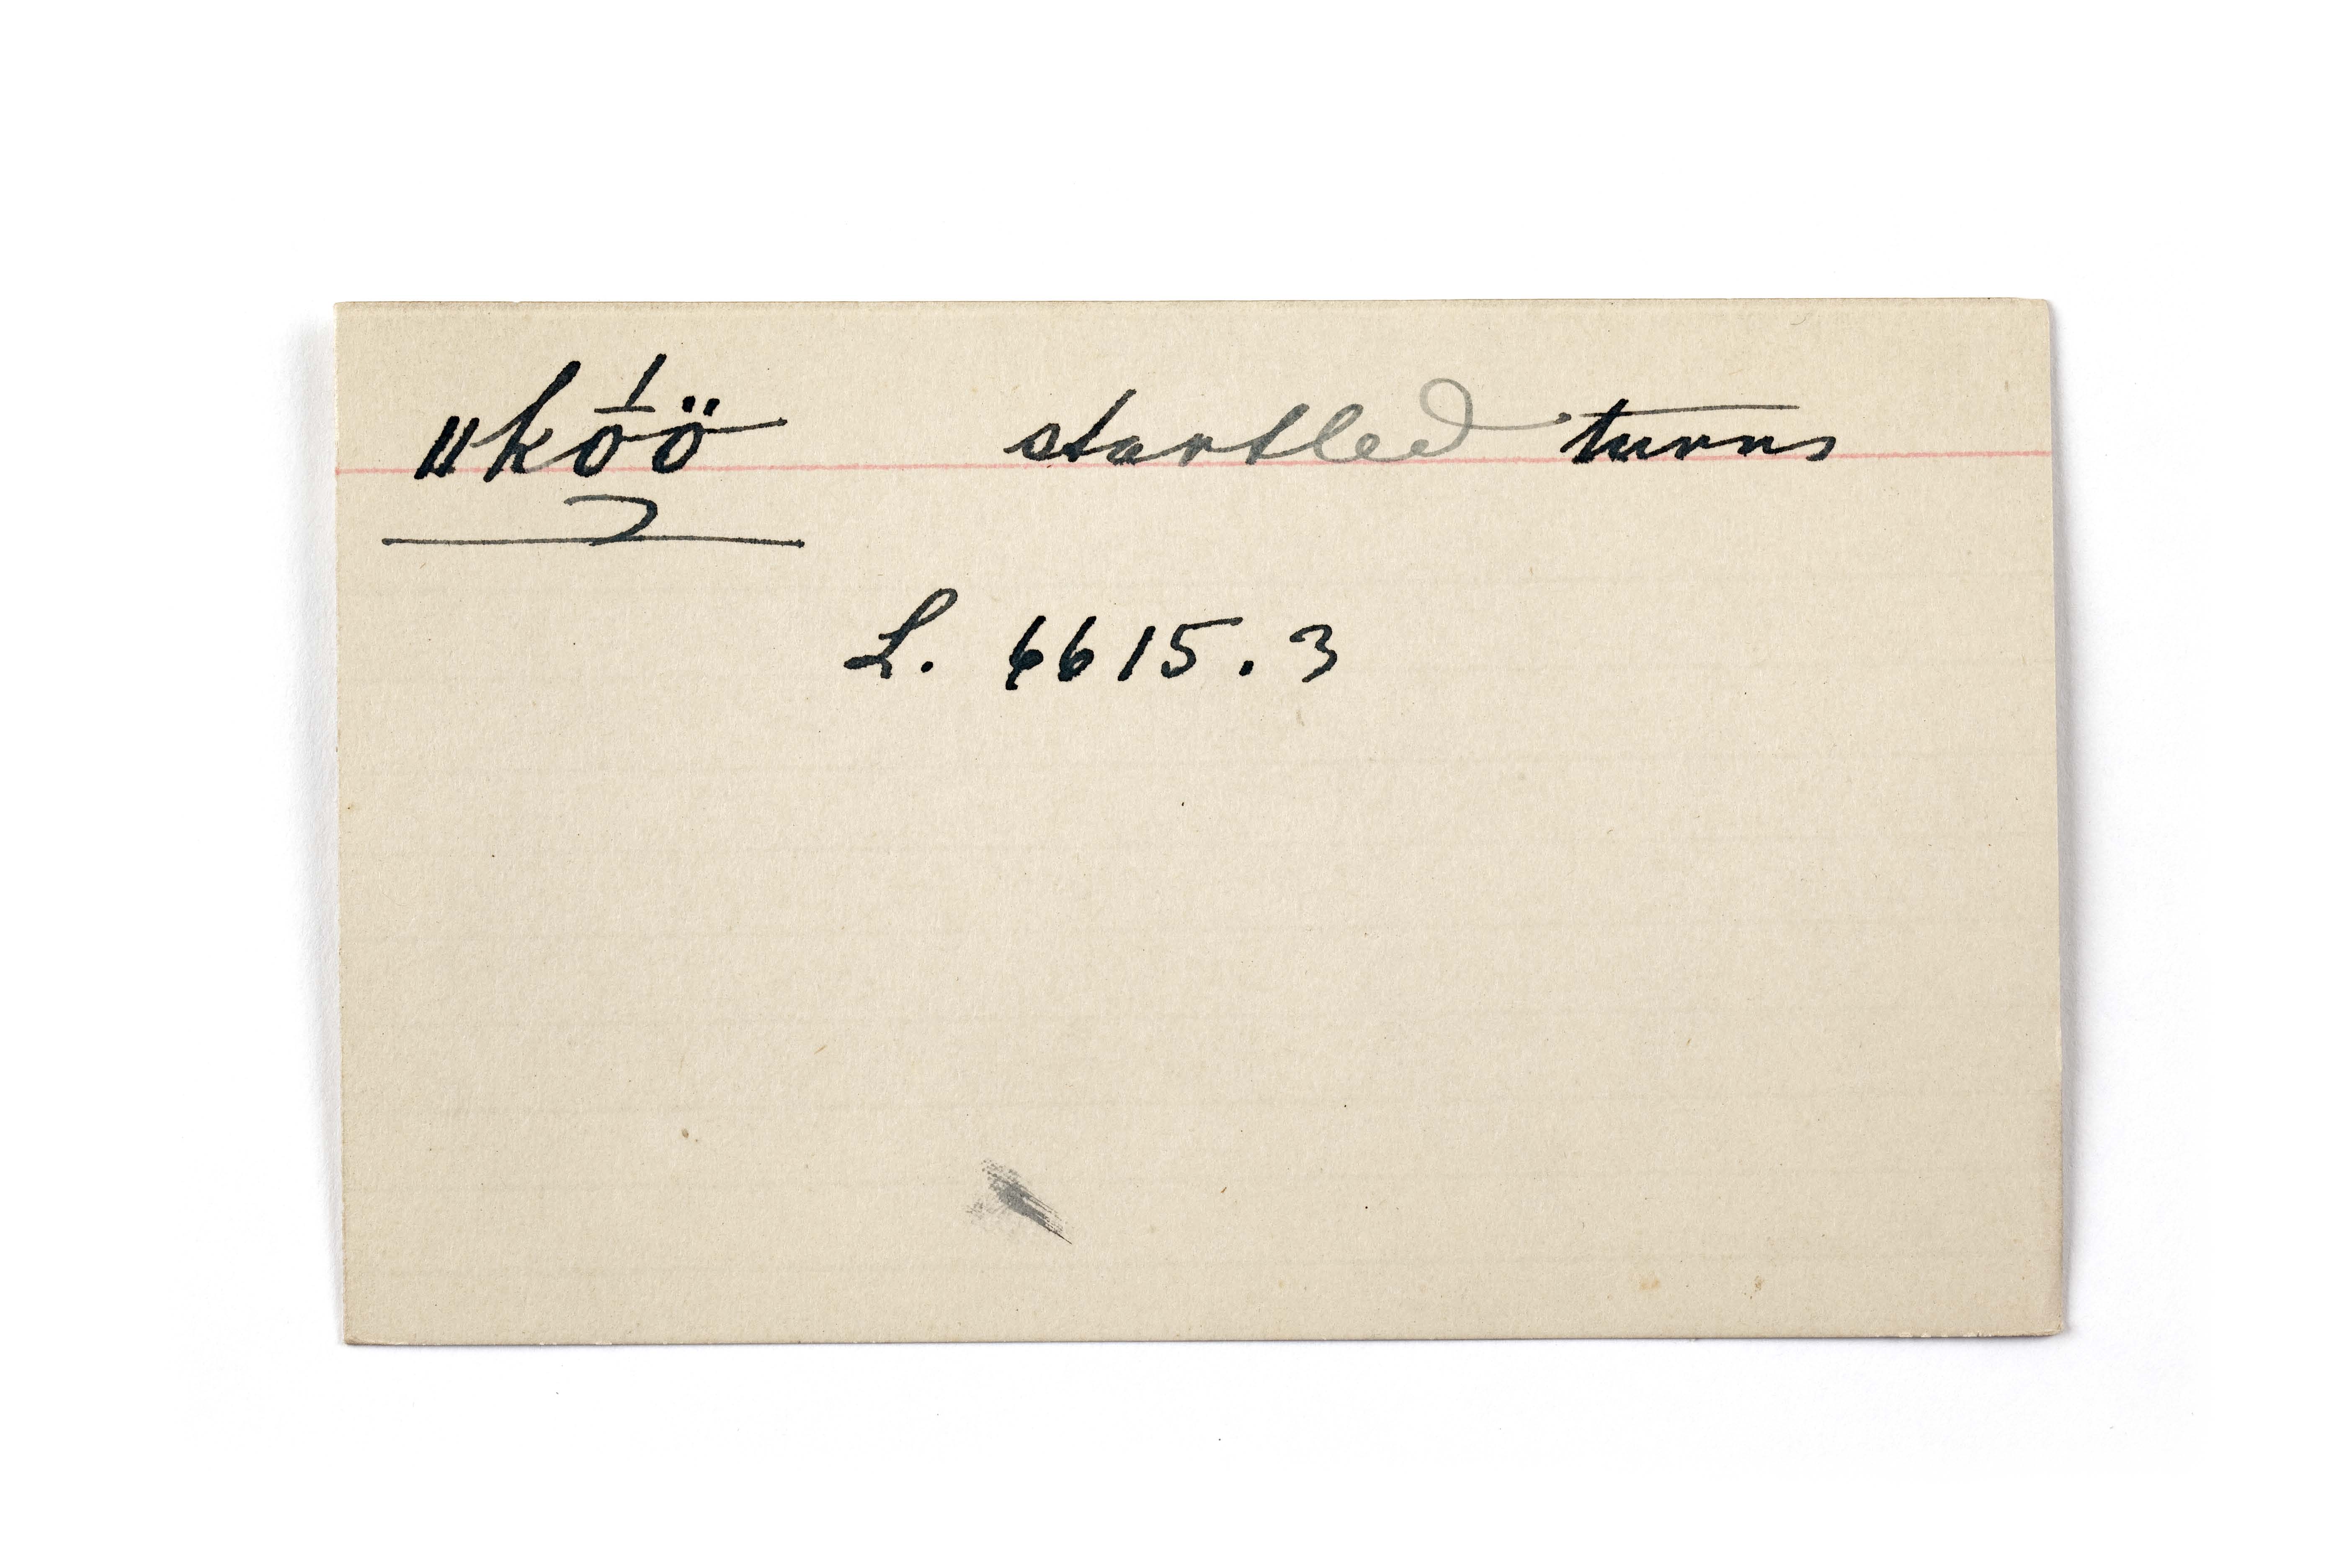 ǁkṓ́ö startled turns
L. 6615.3